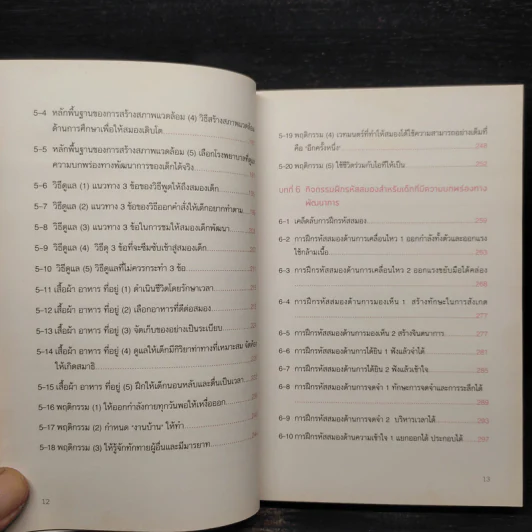 5-4 หลักพื้นฐานของการสร้างสภาพแวดล้อม (4) วิธีสร้างสภาพแวดล้อม
ด้านการศึกษาเพื่อให้สมองเติบโต
5-5 หลักพื้นฐานของการสร้างสภาพแวดล้อม (5) เลือกโรงพยาบาลที่
ความบกพร่องทางพัฒนาการของเด็กได้จริง
5-6 วิธีดูแล (1) แนวทาง 3 ข้อของวิธีพูดให้ถึงสมองเด็ก
5-7 วิธีดูแล (2) แนวทาง 3 ข้อของวิธีออกคำสั่งให้เด็กอยากทำตาม
5-8 วิธีดูแล (3) แนวทาง 3 ข้อในการชมให้สมองเด็กพัฒนา
5-9 วิธีดูแล (4) วิธีดุ 3 ข้อที่จะซึมซับเข้าสู่สมองเด็ก
5-10 วิธีดูแล (5) วิธีดูแลที่ไม่ควรกระทำ 3 ข้อ
5-11 เสื้อผ้า อาหาร ที่อยู่ (1) ดำเนินชีวิตโดยรักษาเวลา
5-12 เสื้อผ้า อาหาร ที่อยู่ (2) เลือกอาหารที่ดีต่อสมอง
5-13 เสื้อผ้า อาหาร ที่อยู่ (3) จัดเก็บของอย่างเป็นระเบียบ
5-14 เสื้อผ้า อาหาร ที่อยู่ (4) ดูแลให้เด็กมีกิริยาท่าทางที่เหมาะสม
ให้เกิดสมาธิ
5-15 เสื้อผ้า อาหาร ที่อยู่ (5) ฝึกให้เด็กนอนหลับและตื่นเป็นเวลา
5-16 พฤติกรรม (1) ให้ออกกำลังกายทุกวันพอให้เหงื่อออก
5-17 พฤติกรรม (2) กำหนด ‘งานบ้าน’ ให้ทำ
5-18 พฤติกรรม (3) ให้รู้จักทักทายผู้อื่นและมีมารยาท
12
5-19 พฤติกรรม (4) เวทมนตร์ที่ทำให้สมองได้ใช้ความสามารถอย่างเต็มที่
คือ ‘อีกครั้งหนึ่ง’
5-20 พฤติกรรม (5) ใช้ชีวิตร่วมกับไอทีให้เป็น 252
บทที่ 6 กิจกรรมฝึกรหัสสมองสำหรับเด็กที่มีความบกพร่องทาง
พัฒนาการ
6-1 เคล็ดลับการฝึกรหัสสมอง 259
6-2 การฝึกรหัสสมองด้านการเคลื่อนไหว 1 ออกกำลังทั้งตัวและออกแรง
ใช้กล้ามเนื้อ 263
6-3 การฝึกรหัสสมองด้านการเคลื่อนไหว 2 ออกแรงขยับมือได้คล่อง
268
6-4 การฝึกรหัสสมองด้านการมองเห็น 1 สร้างทักษะในการสังเกต
277
6-5 การฝึกรหัสสมองด้านการมองเห็น 2 สร้างจินตนาการ 277
6-6 การฝึกรหัสสมองด้านการได้ยิน 1 ฟังแล้วจำได้ 281
6-7 การฝึกรหัสสมองด้านการได้ยิน 2 ฟังแล้วเข้าใจ 285
6-8 การฝึกรหัสสมองด้านการจดจำ 1 ทักษะการจดจำและการระลึกได้
289
6-9 การฝึกรหัสสมองด้านการจดจำ 2 บริหารเวลาได้ 293
6-10 การฝึกรหัสสมองด้านความเข้าใจ 1 แยกออกได้ ประกอบได้ 297
13